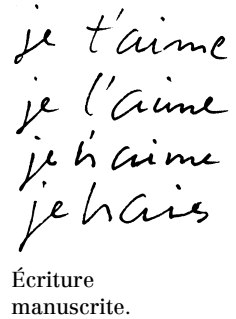 je t'aime
je l'aime
je h aime
je hais
Écriture
manuscrite.